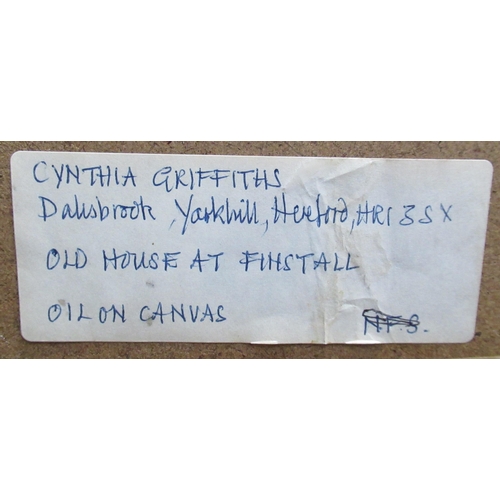 CYNTHIA GRIFFITHS
Dalisbrook, Yarkhill, Hereford, HR1 3SX
OLD HOUSE AT FINSTALL
OIL ON CANVAS N.F.S.